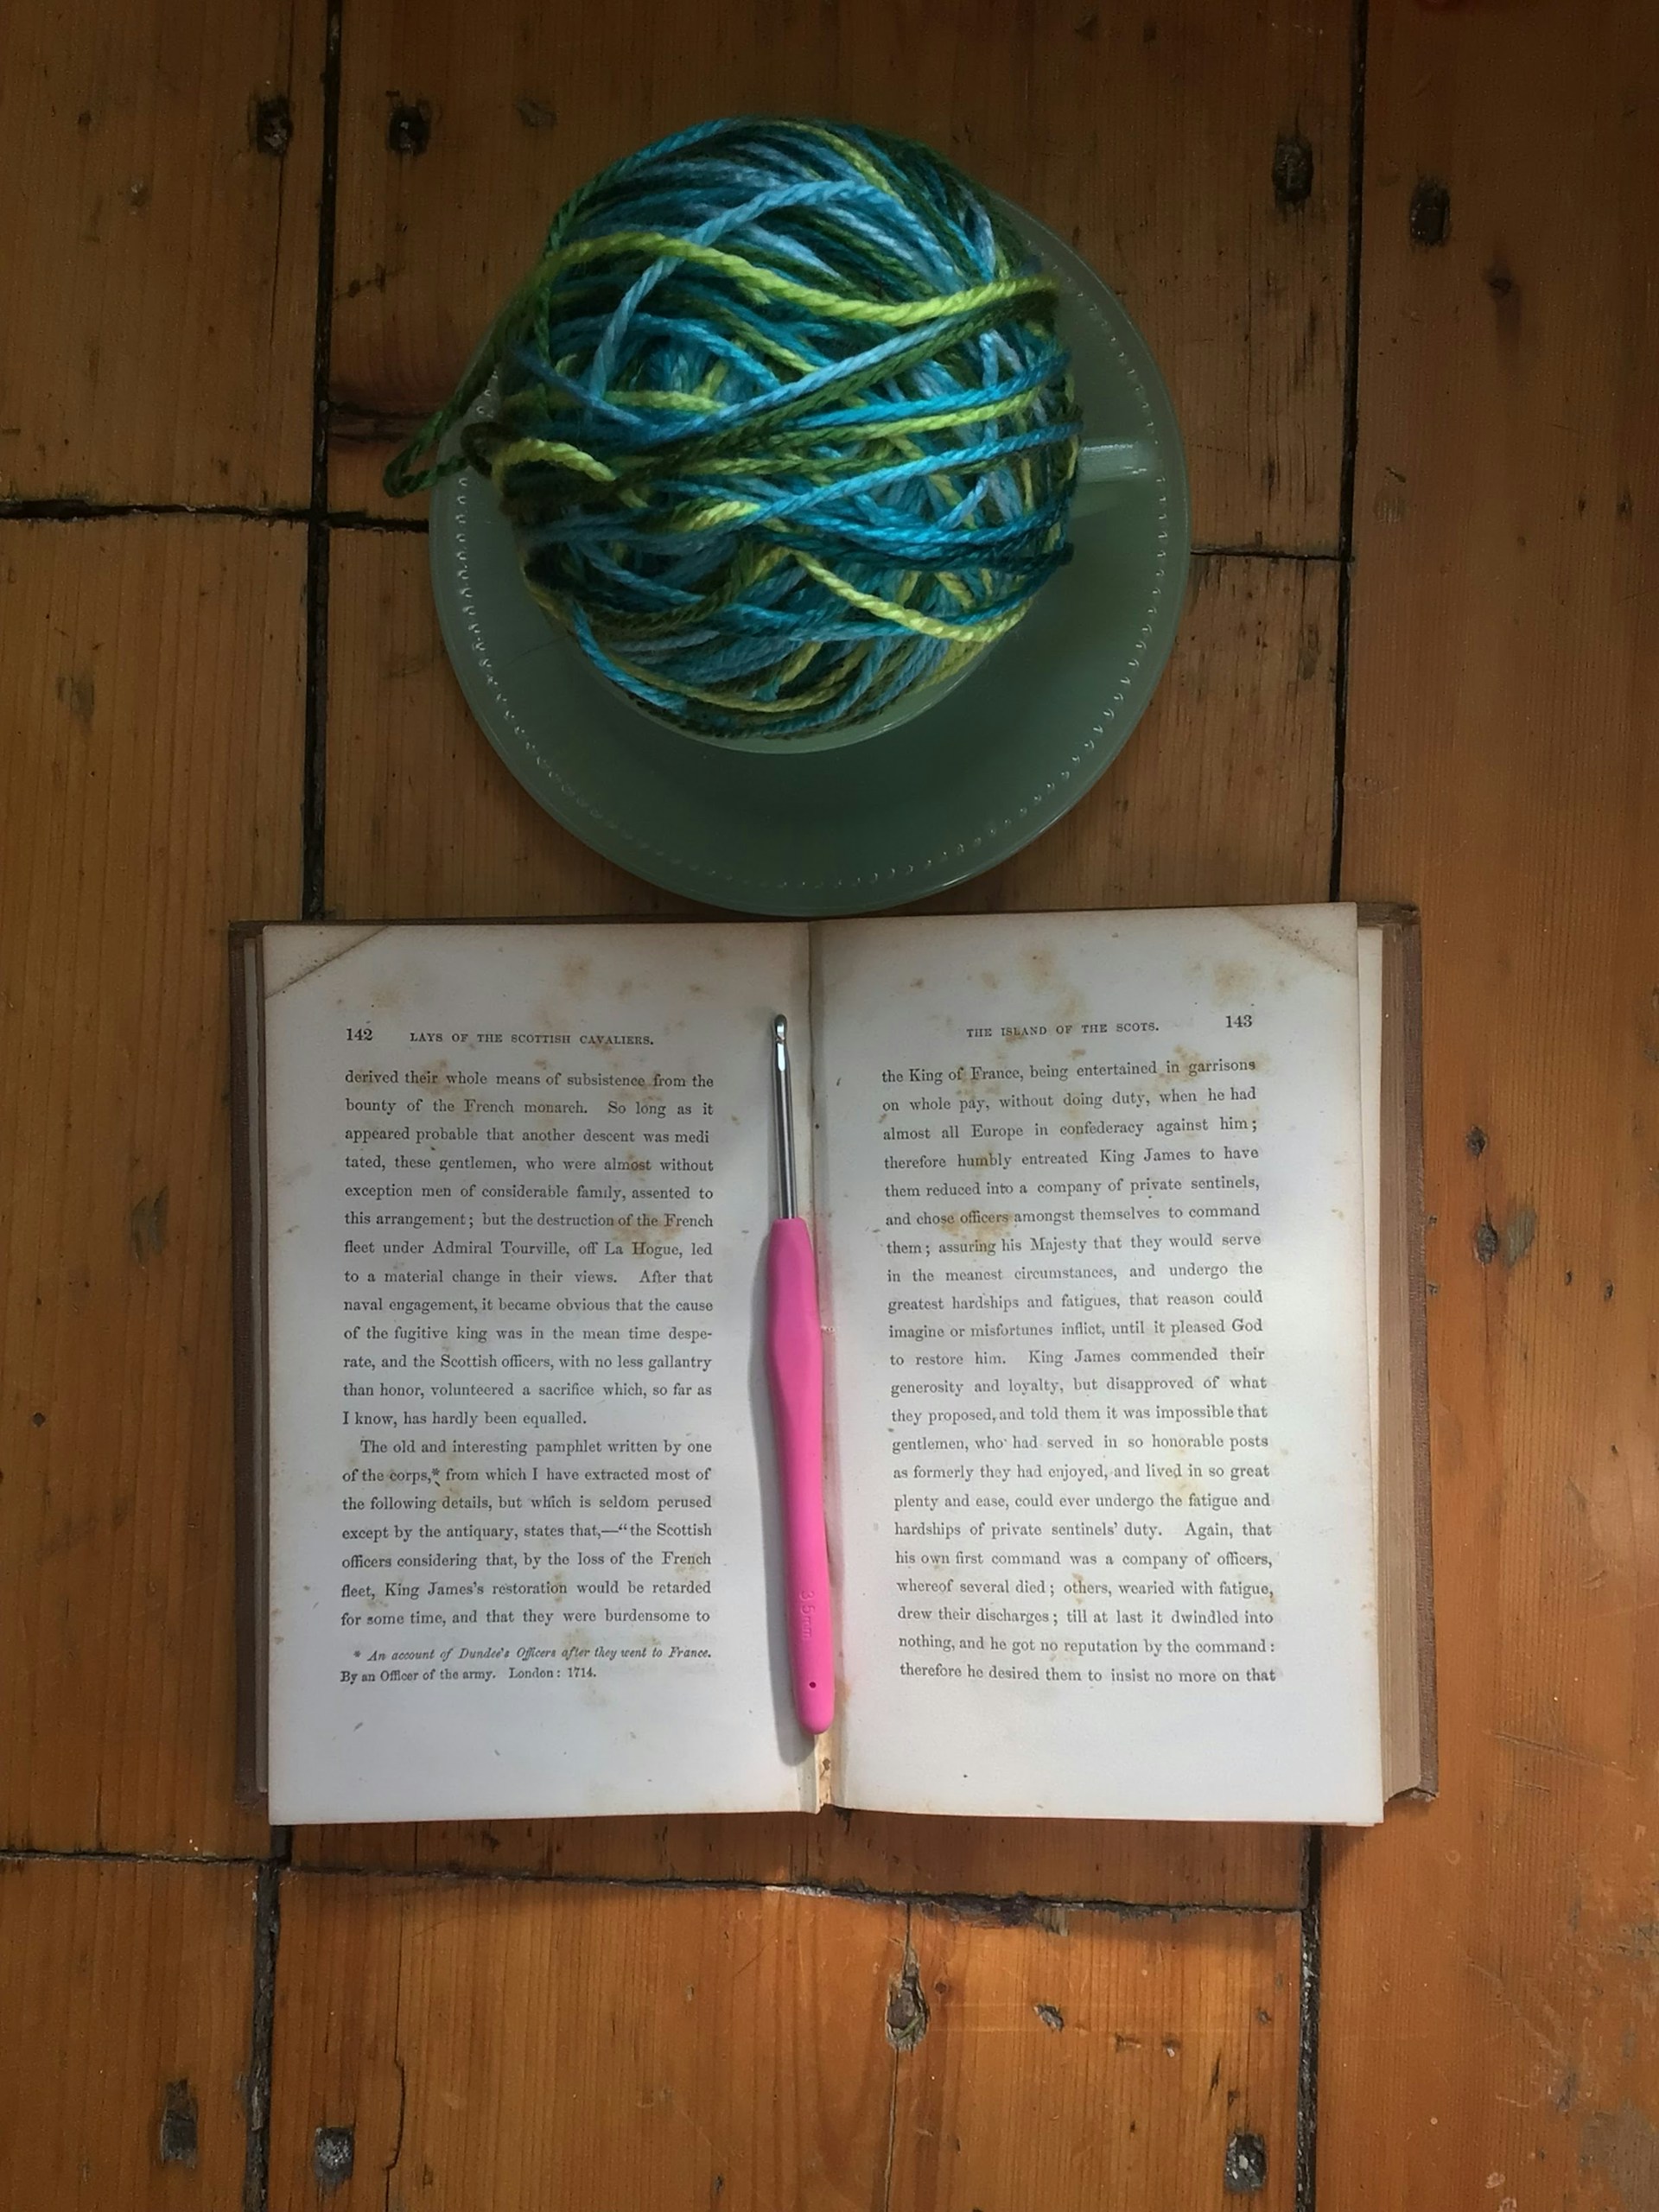 142 LAYS OF THE SCOTTISH CAVALIERS.
derived their whole means of subsistence from the
bounty of the French monarch. So long as it
appeared probable that another descent was medi
tated, these gentlemen, who were almost without
exception men of considerable family, assented to
this arrangement; but the destruction of the French
fleet under Admiral Tourville, off La Hogue, led
to a material change in their views. After that
naval engagement, it became obvious that the cause
of the fugitive king was in the mean time despe-
rate, and the Scottish officers, with no less gallantry
than honor, volunteered a sacrifice which, so far as
I know, has hardly been equalled.
The old and interesting pamphlet written by one
of the corps,* from which I have extracted most of
the following details, but which is seldom perused
except by the antiquary, states that,—“the Scottish
officers considering that, by the loss of the French
fleet, King James's restoration would be retarded
for some time, and that they were burdensome to
* An account of Dundee's Officers after they went to France.
By an Officer of the army. London: 1714.
THE ISLAND OF THE SCOTS. 143
the King of France, being entertained in garrisons
on whole pay, without doing duty, when he had
almost all Europe in confederacy against him;
therefore humbly entreated King James to have
them reduced into a company of private sentinels,
and chose officers amongst themselves to command
them; assuring his Majesty that they would serve
in the meanest circumstances, and undergo the
greatest hardships and fatigues, that reason could
imagine or misfortunes inflict, until it pleased God
to restore him. King James commended their
generosity and loyalty, but disapproved of what
they proposed, and told them it was impossible that
gentlemen, who had served in so honorable posts
as formerly they had enjoyed, and lived in so great
plenty and ease, could ever undergo the fatigue and
hardships of private sentinels' duty. Again, that
his own first command was a company of officers,
whereof several died; others, wearied with fatigue,
drew their discharges; till at last it dwindled into
nothing, and he got no reputation by the command:
therefore he desired them to insist no more on that
3.5mm